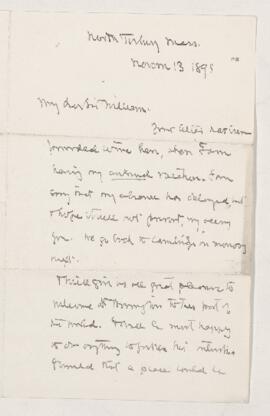 North Tisbury Mass.
Novem 13 1895
My dear Sir William.
Your letter has been
forwarded to me here, where I am
having my autumnal vacation. I am
sorry that my absence has delayed it
I hope it will not prevent my seeing
you. We go back to Cambridge on monday
next.
It will give us all great pleasure to
welcome to
this part of
the world. I shall be most happy
to do anything to further his
that a place could be